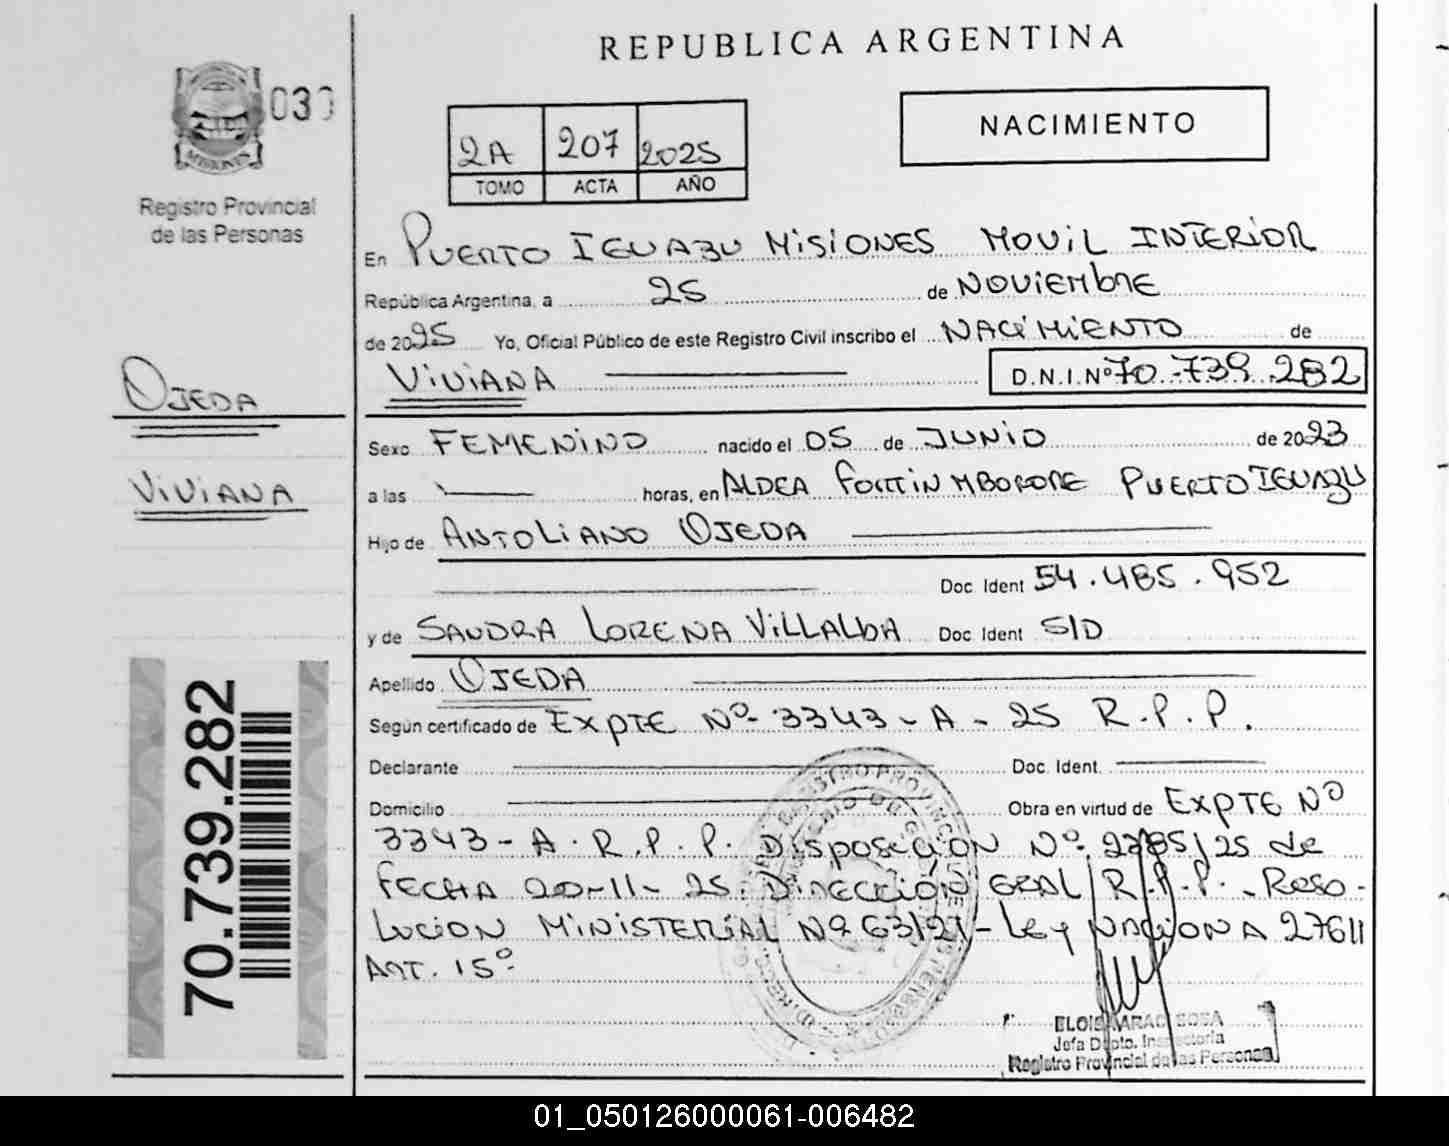 REPUBLICA ARGENTINA
MISIONES
030
Registro Provincial
de las Personas
2A 207 2025
TOMO ACTA AÑO
NACIMIENTO
En PUERTO IGUAZU MISIONES MOVIL INTERIOR
República Argentina, a 25 de NOVIEMBRE
de 2025 Yo, Oficial Público de este Registro Civil inscribo el NACIMIENTO de
VIVIANA D.N.I.Nº 70.739.282
OJEDA
VIVIANA
Sexo FEMENINO nacido el 05 de JUNIO de 2023
a las horas, en ALDEA FORTIN MBORORE PUERTO IGUAZU
Hijo de ANTOLIANO OJEDA
Doc. Ident 54.485.952
y de SANDRA LORENA VILLALBA Doc. Ident S/D
Apellido OJEDA
Según certificado de EXPTE Nº 3343-A-25 R.P.P.
Declarante Doc. Ident.
Domicilio Obra en virtud de EXPTE Nº
3343-A.R.P.P. Disposición Nº 2785/25 de
FECHA 20-11-25. DIRECCIÓN GRAL R.P.P.- Reso-
LUCION MINISTERIAL Nº 63/21-Ley NACIONA 27611
ART. 15º
70.739.282
Jefa Dpto. Inspectoria
Registro Provincial de las Personas
01_050126000061-006482